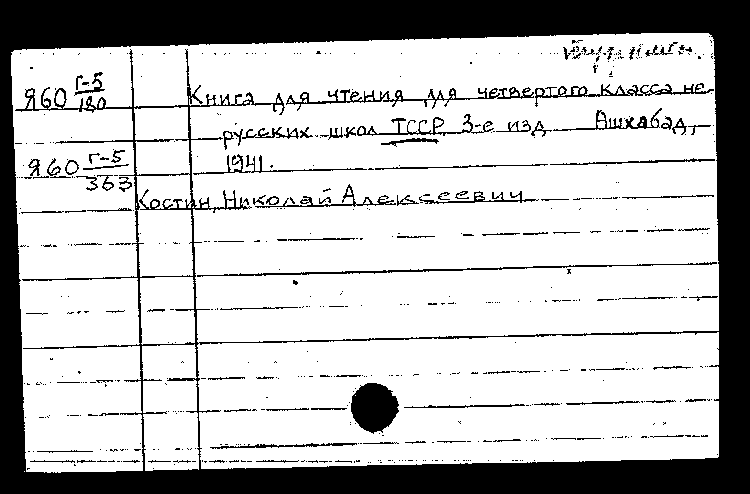 Я60 Г-5/180 Книга для чтения для четвертого класса не-
русских школ ТССР. 3-е изд. Ашхабад,
Я60 Г-5/363 1941.
Костин, Николай Алексеевич